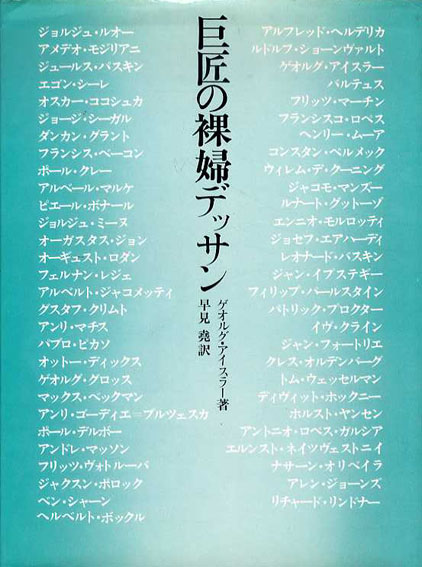 巨匠の裸婦デッサン
ゲオルグ・アイスラー著
早見 堯訳
ジョルジュ・ルオー
アメデオ・モジリアニ
ジュールス・パスキン
エゴン・シーレ
オスカー・ココシュカ
ジョージ・シーガル
ダンカン・グラント
フランシス・ベーコン
ポール・クレー
アルベール・マルケ
ピエール・ボナール
ジョルジュ・ミーヌ
オーガスタス・ジョン
オーギュスト・ロダン
フェルナン・レジェ
アルベルト・ジャコメッティ
グスタフ・クリムト
アンリ・マチス
パブロ・ピカソ
オットー・ディックス
ゲオルグ・グロッス
マックス・ベックマン
アンリ・ゴーディエ=ブルツェスカ
ポール・デルボー
アンドレ・マッソン
フリッツ・ヴォトルーバ
ジャクスン・ポロック
ベン・シャーン
ヘルベルト・ボックル
アルフレッド・ヘルデリカ
ルドルフ・ショーンヴァルト
ゲオルグ・アイスラー
バルテュス
フリッツ・マーチン
フランシスコ・ロペス
ヘンリー・ムーア
コンスタン・ペルメック
ウィレム・デ・クーニング
ジャコモ・マンズー
ルナート・グットーゾ
エンニオ・モルロッティ
ジョセフ・エアハーディ
レオナード・バスキン
ジャン・イプステギー
フィリップ・パールスタイン
パトリック・プロクター
イヴ・クライン
ジャン・フォートリエ
クレス・オルデンバーグ
トム・ウェッセルマン
ディヴィット・ホックニー
ホルスト・ヤンセン
アントニオ・ロペス・ガルシア
エルンスト・ネイツヴェストニイ
ナサーン・オリベイラ
アレン・ジョーンズ
リチャード・リンドナー